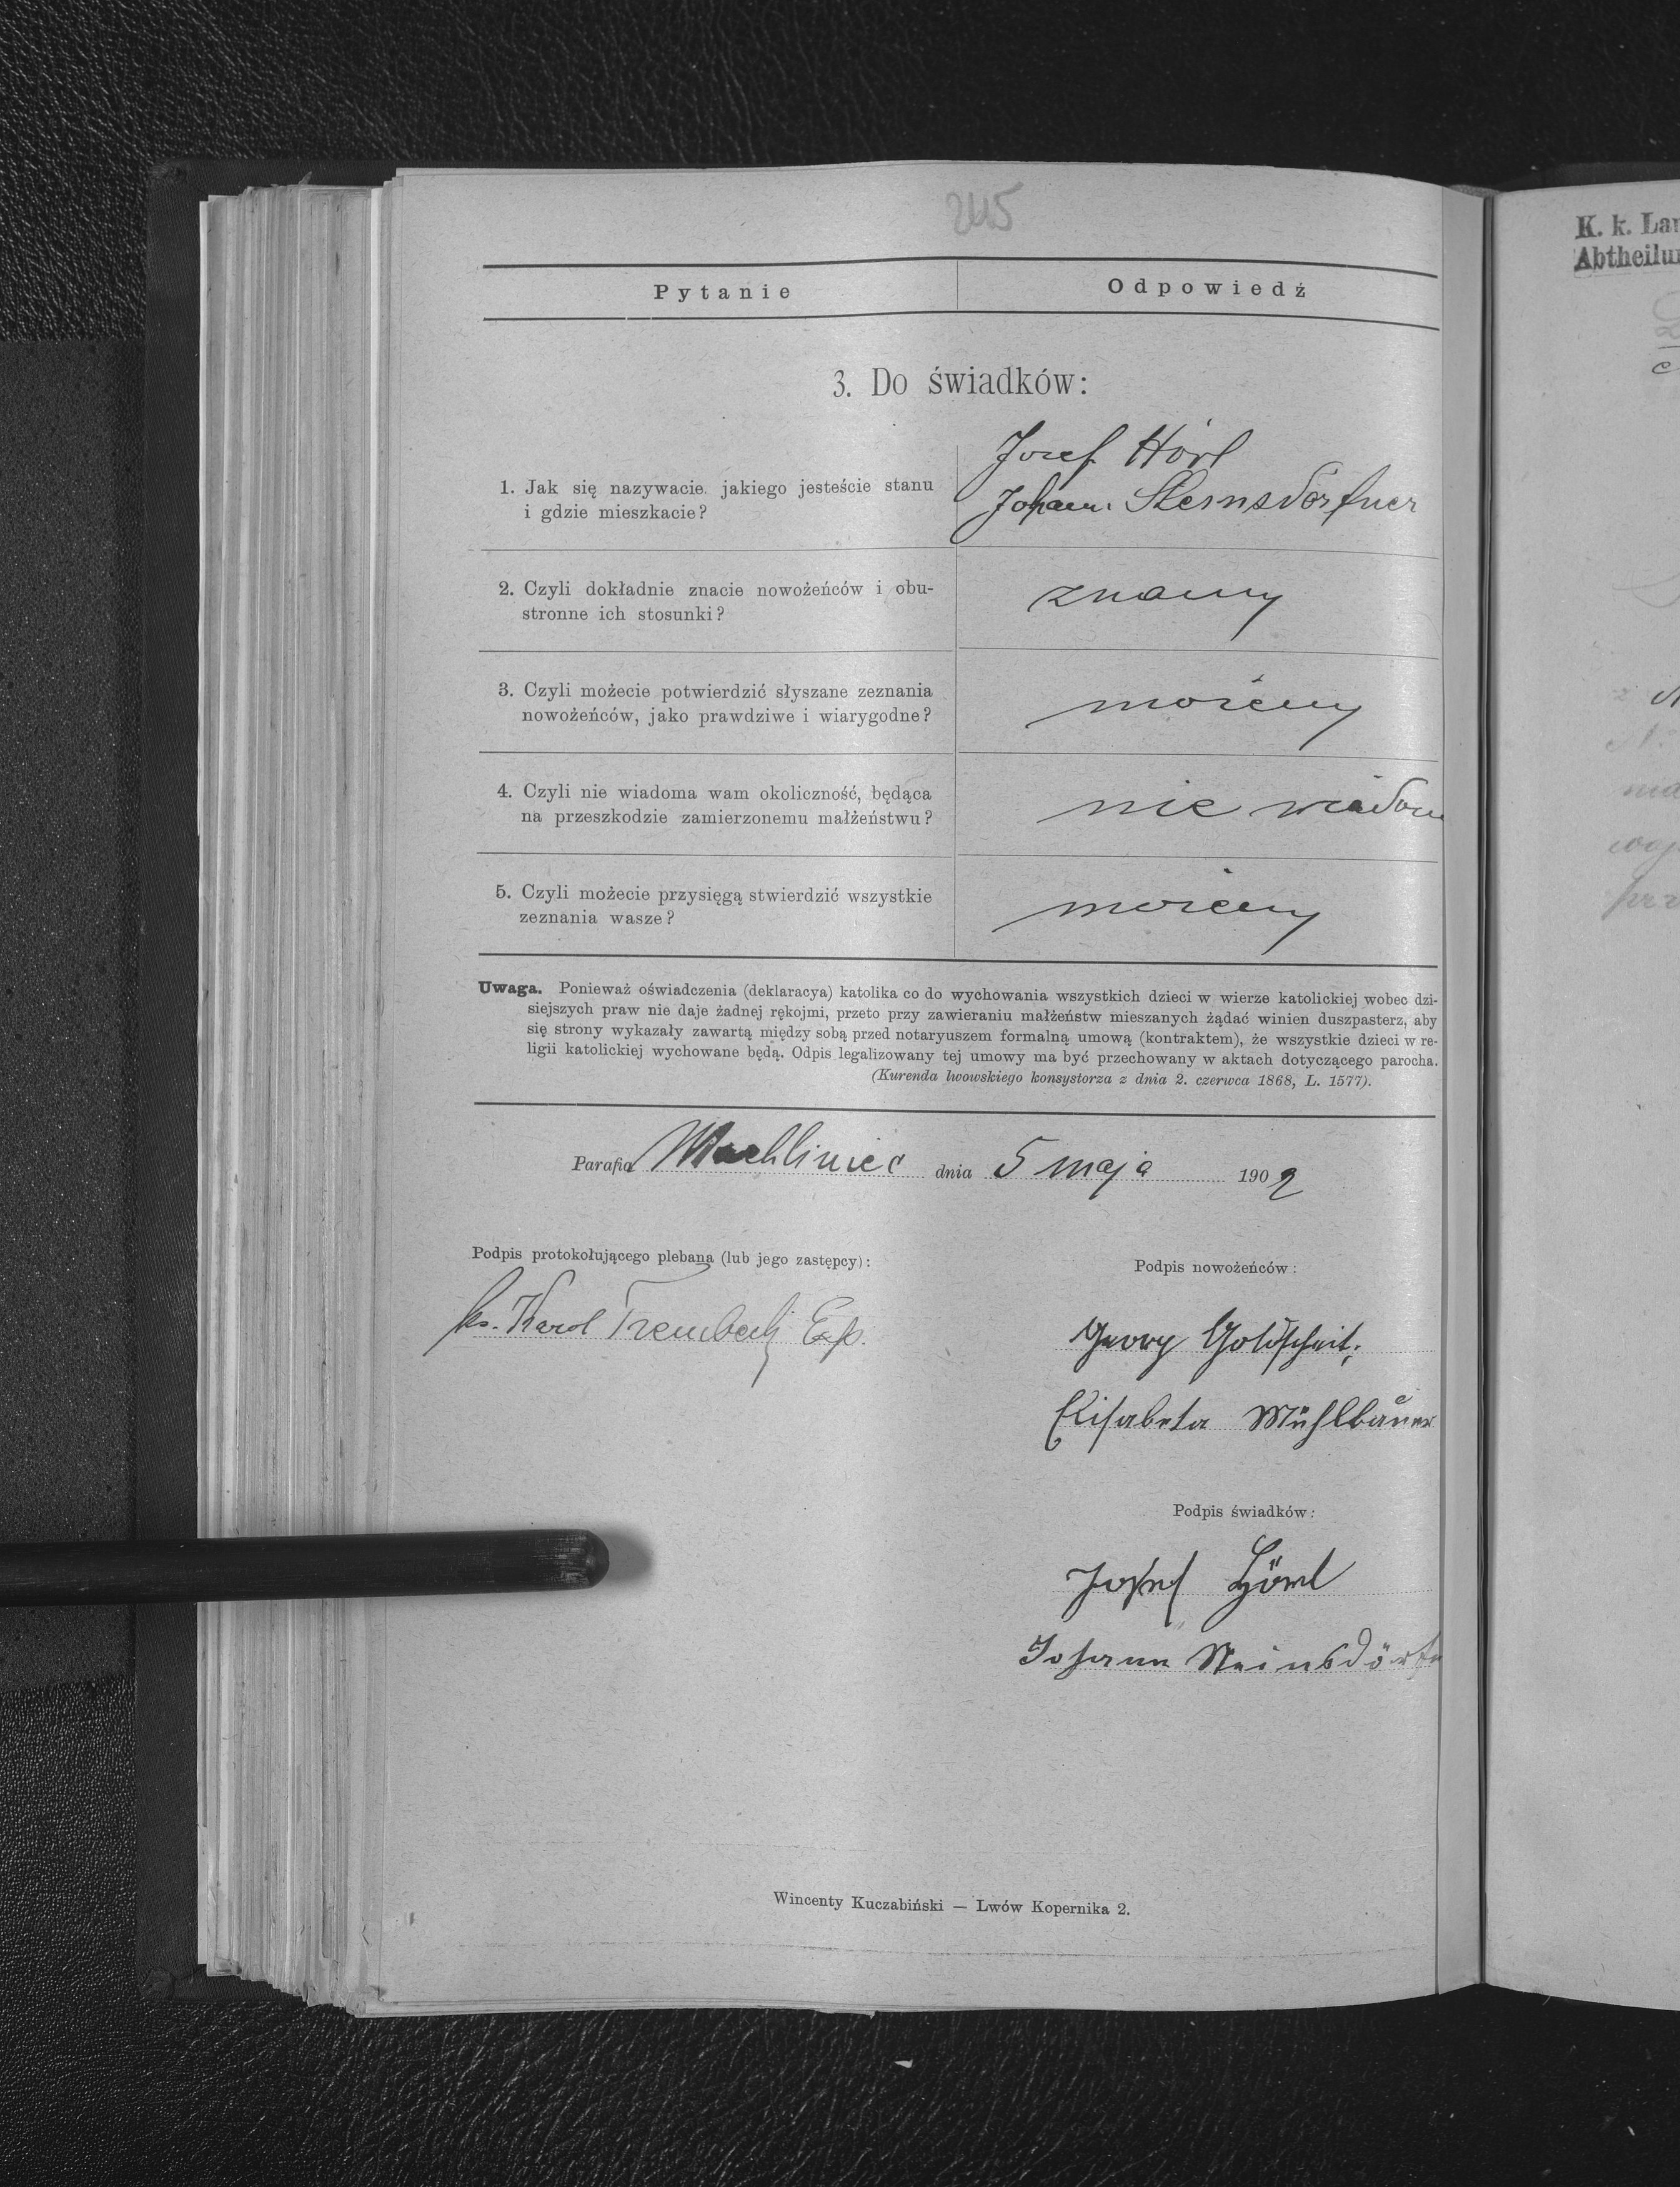 245
Pytanie Odpowiedź
3. Do świadków:
Josef Hörl
1. Jak się nazywacie jakiego jesteście stanu
i gdzie mieszkacie?
Johann Steinsdorfner
2. Czyli dokładnie znacie nowożeńców i obu-
stronne ich stosunki?
znamy
3. Czyli możecie potwierdzić słyszane zeznania
nowożeńców, jako prawdziwe i wiarygodne?
możemy
4. Czyli nie wiadoma wam okoliczność, będąca
na przeszkodzie zamierzonemu małżeństwu?
nie wiadom
5. Czyli możecie przysięgą stwierdzić wszystkie
zeznania wasze?
możemy
Uwaga. Ponieważ oświadczenia (deklaracya) katolika co do wychowania wszystkich dzieci w wierze katolickiej wobec dzi-
siejszych praw nie daje żadnej rękojmi, przeto przy zawieraniu małżeństw mieszanych żądać winien duszpasterz, aby
się strony wykazały zawartą między sobą przed notaryuszem formalną umową (kontraktem), że wszystkie dzieci w re-
ligii katolickiej wychowane będą. Odpis legalizowany tej umowy ma być przechowany w aktach dotyczącego parocha.
(Kurenda lwowskiego konsystorza z dnia 2. czerwca 1868, L. 1577).
Parafia Machliniec dnia 5 maja 1902
Podpis protokołującego plebana (lub jego zastępcy):
ks. Karol Trembecki Exp.
Podpis nowożeńców:
Georg Goldscheit
Elisabeta Mühlbauer
Podpis świadków:
Josef Hörl
Johann Steinsdörfn
Wincenty Kuczabiński — Lwów Kopernika 2.
K. k. Lan
Abtheilun